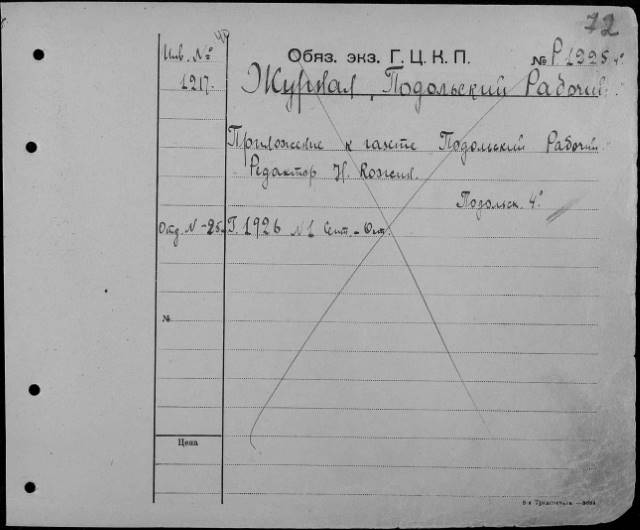 72
Инв. №
1217.
Обяз. экз. Г. Ц. К. П.
№ Р1225 4°
Журнал „Подольский Рабочий“
Приложение к газете Подольский Рабочий.
Редактор Н. Кожин.
Подольск. 4°
Г. 1926 №1 Сент.-Окт.
№
Цена